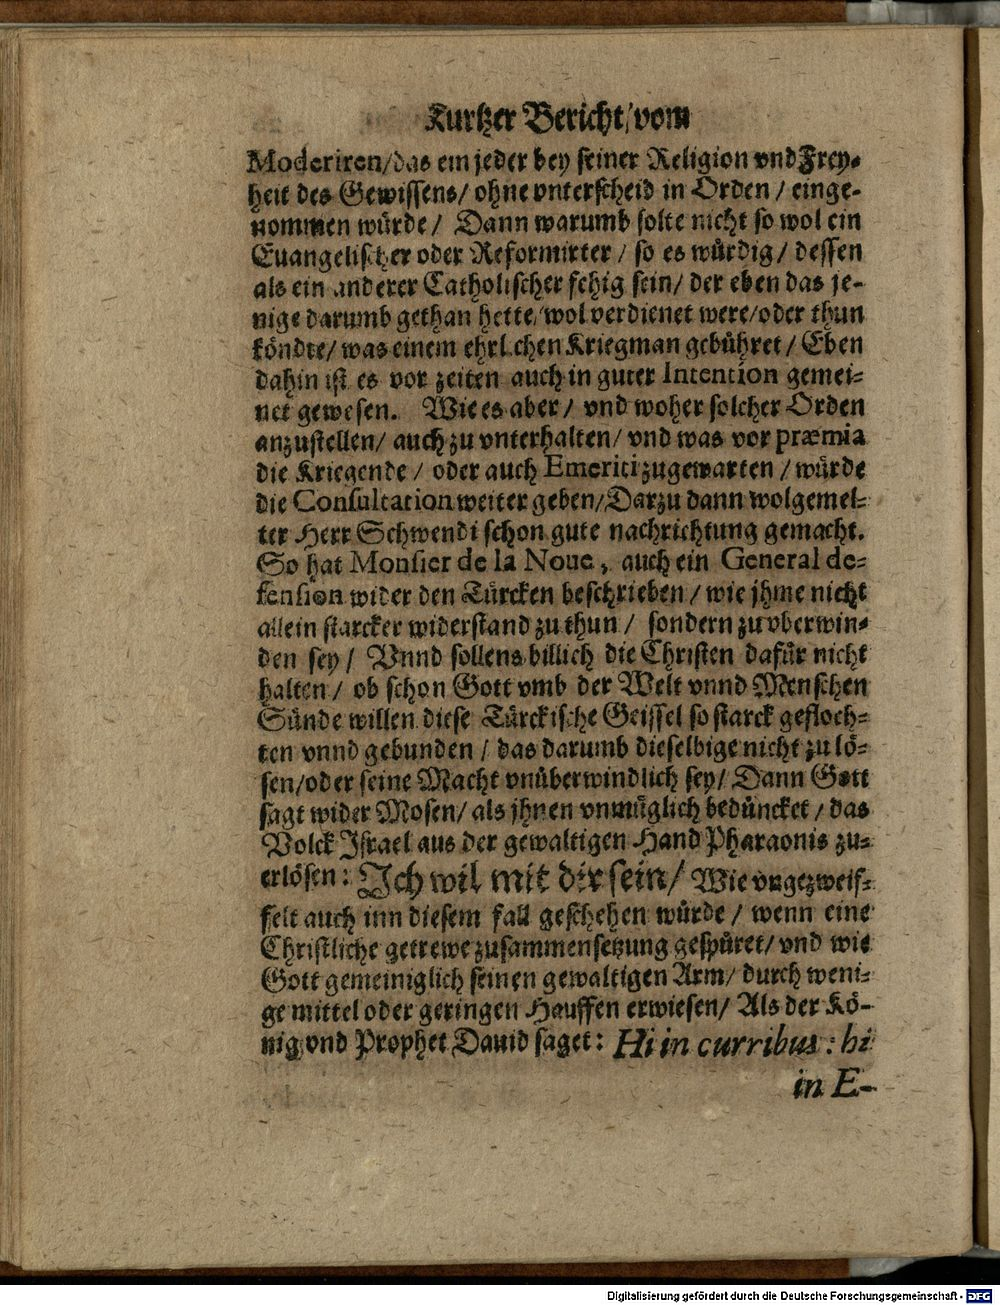 Kurtzer Bericht / vom
Moderiren / das ein jeder bey seiner Religion vnd Frey-
heit des Gewissens / ohne vnterscheid in Orden / einge-
nommen würde / Dann warumb solte nicht so wol ein
Euangelischer oder Reformirter / so es würdig / dessen
als ein anderer Catholischer fehig sein / der eben das je-
nige darumb gethan hette / wol verdienet were / oder thun
köndte / was einem ehrlichen Kriegman gebühret / Eben
dahin ist es vor zeiten auch in guter Intention gemei-
net gewesen. Wie es aber / vnd woher solcher Orden
anzustellen / auch zu vnterhalten / vnd was vor præmia
die Kriegende / oder auch Emeriti zugewarten / würde
die Consultation weiter geben / Darzu dann wolgemel-
ter Herr Schwendi schon gute nachrichtung gemacht.
So hat Monsier de la Noue, auch ein General de-
fension wider den Türcken beschrieben / wie jhme nicht
allein starcker widerstand zu thun / sondern zu vberwin-
den sey / Vnnd sollens billich die Christen dafür nicht
halten / ob schon Gott vmb der Welt vnnd Menschen
Sünde willen diese Türckische Geissel so starck gefloch-
ten vnnd gebunden / das darumb dieselbige nicht zu lö-
sen / oder seine Macht vnüberwindlich sey / Dann Gott
sagt wider Mosen / als jhnen vnmüglich bedüncket / das
Volck Israel aus der gewaltigen Hand Pharaonis zu-
erlösen: Ich wil mit dir sein / Wie vngezweif-
felt auch inn diesem fall geschehen würde / wenn eine
Christliche getrewe zusammensetzung gespüret / vnd wie
Gott gemeiniglich seinen gewaltigen Arm / durch weni-
ge mittel oder geringen Hauffen erwiesen / Als der Kö-
nig vnd Prophet Dauid saget: Hi in curribus: hi
in E-
Digitalisierung gefördert durch die Deutsche Forschungsgemeinschaft - DFG